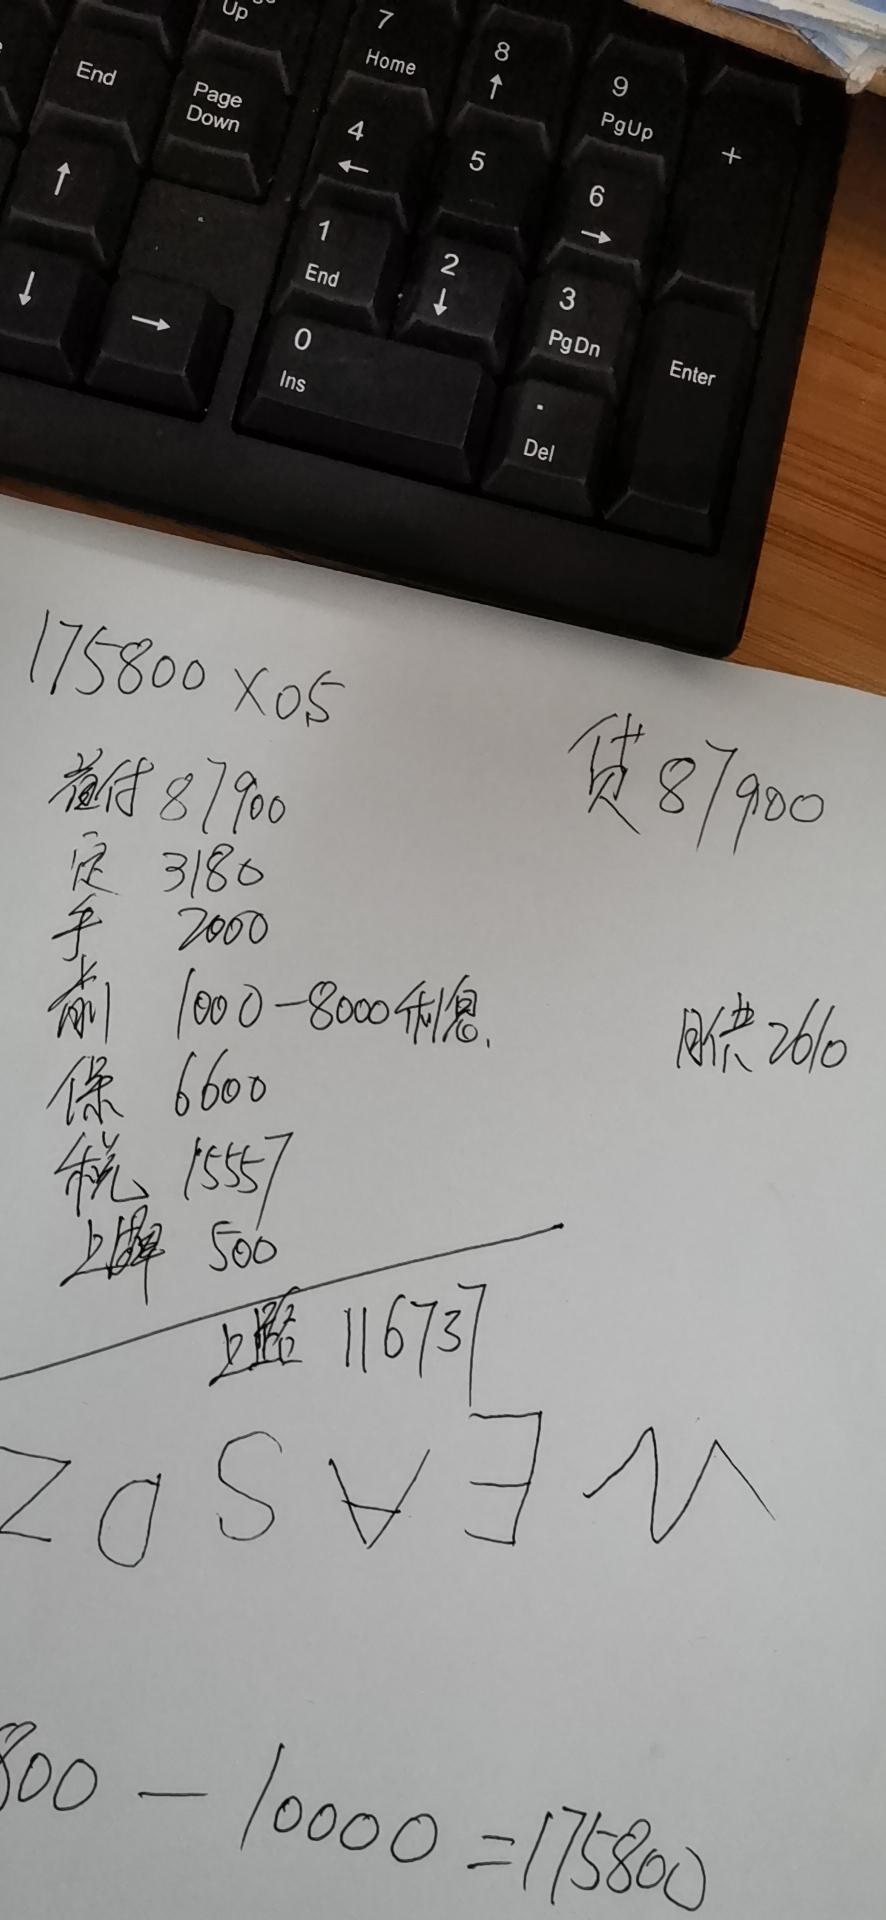 Up
7
Home
8
↑
9
PgUp
+
End
Page
Down
4
←
5
6
→
↑
1
End
2
↓
3
PgDn
Enter
↓
→
0
Ins
.
Del
175800 × 0.5
首付 87900
贷 87900
定 3180
手 2000
前 1000-8000利息.
月供 2610
保 6600
税 15557
上牌 500
上路 116737
N E A S D Z
800 - 10000 = 175800